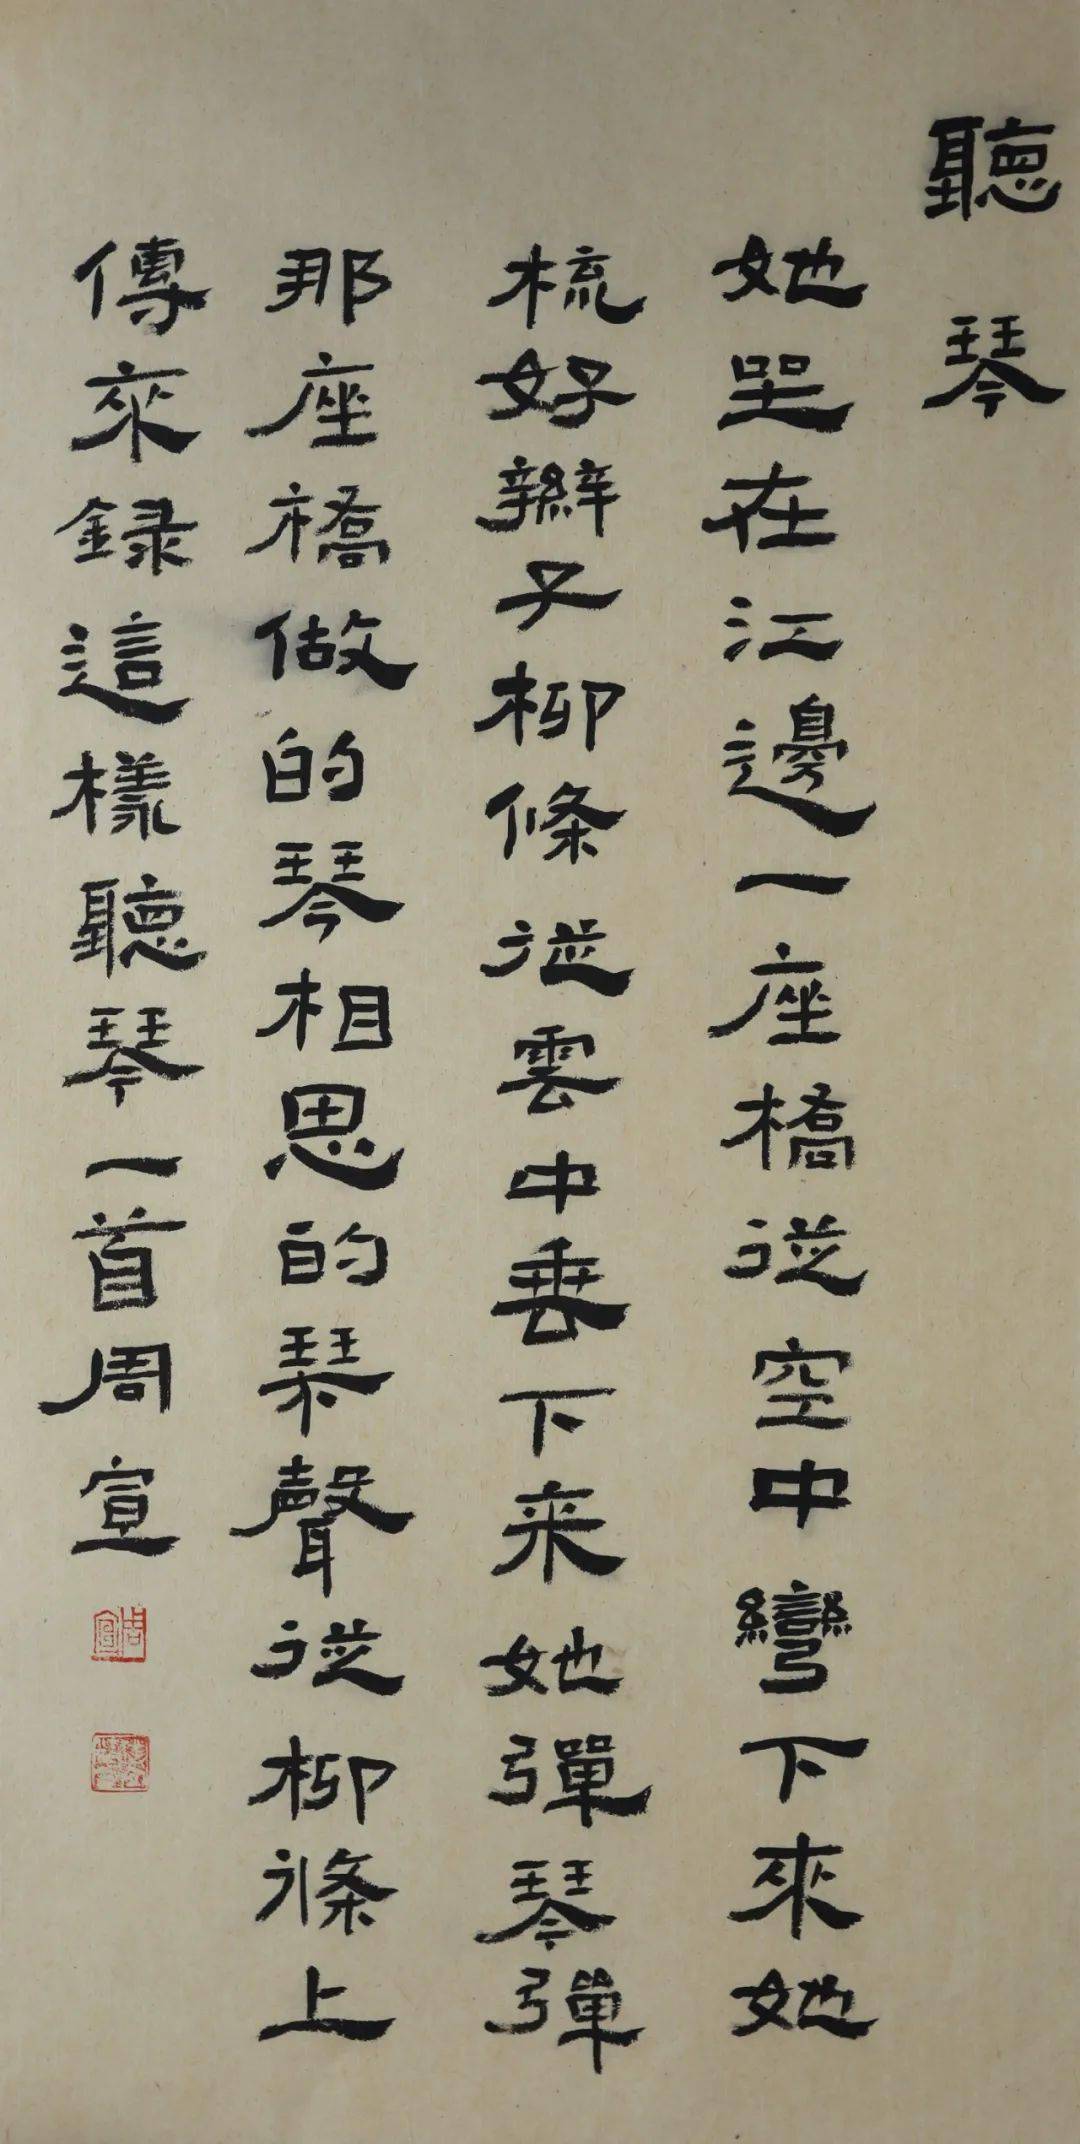 聽琴
她坐在江邊一座橋從空中彎下來她
梳好辮子柳條從雲中垂下来她彈琴彈
那座橋做的琴相思的琴聲從柳條上
傳來録這樣聽琴一首周宣
周宣